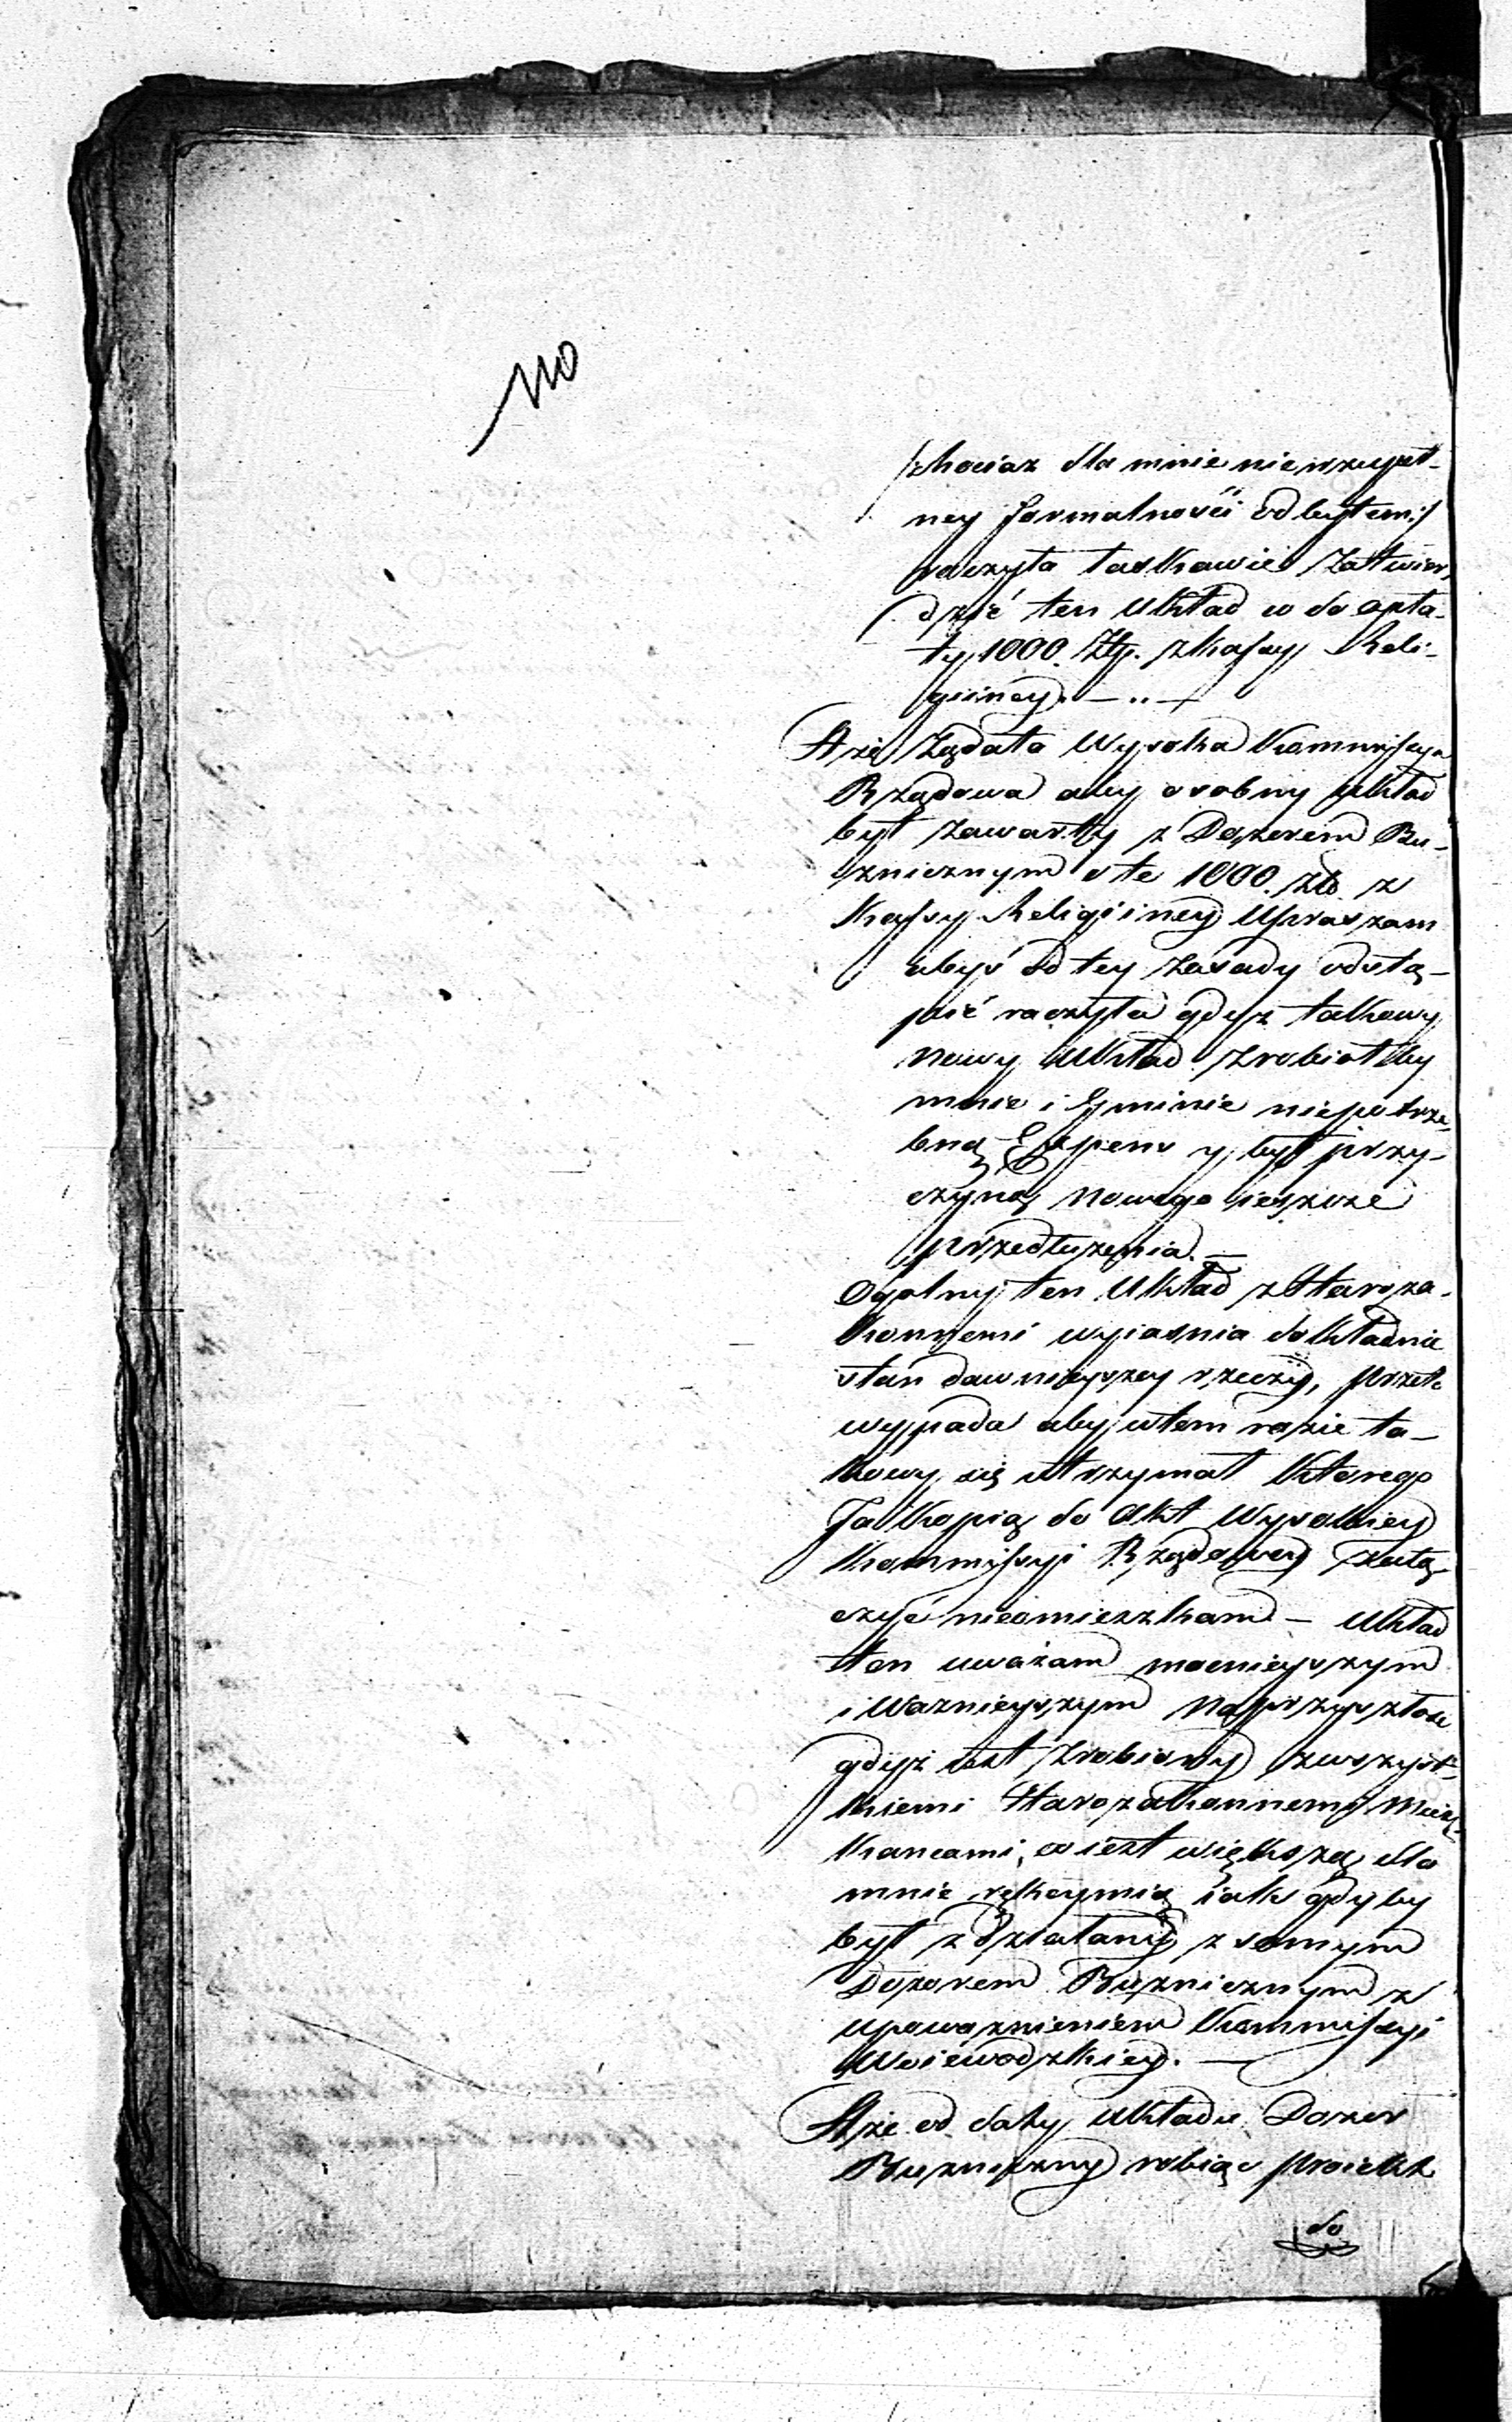 110
/:chociaz dla mnie nie w zupeł-
ney formalności odbytem:/
raczyła łaskawie zatwier-
dzić ten Układ co do opła-
ty 1000 Złp. z Kassy Reli-
giiney. — .. —
A że żądała Wysoka Kommissya
Rządowa aby osobny Układ
był zawarty z Dozorem Bu-
znicznym o te 1000. Zło. z
Kassy Religiiney Upraszam
abyś od tey Zasady odstą-
pić raczyła gdysz takowy
Nowy Układ zrobiołby
mnie i Gminie niepotrze-
bną Expens y był przy-
czyną Nowego ieszcze
przedłuzenia. —
Ogolny ten Układ z Staroza-
konnemi wyiasnia dokładnie
stan dawnieyszey rzeczy, przeto
wypada aby w tem razie ta-
kowy się utrzymał Ktorego
Ja Kopią do Akt Wysokiey
Kommissyi Rządowey załą-
czyć nieomieszkam — Układ
ten uważam mocnieyszym
i Waznieyszym Na przyszłosc
gdysz iest Zrobiony z wszyst-
kiemi Starozakonnemi Miesz-
kancami, co iest większą dla
mnie rękoymią iak gdyby
był zdziałany z samym
Dozorem Buzniczny m z
upowaznieniem Kommissyi
Woiewodzkiey. —
A że od daty Układu Dozor
Buzniczny robiąc proiekt
do